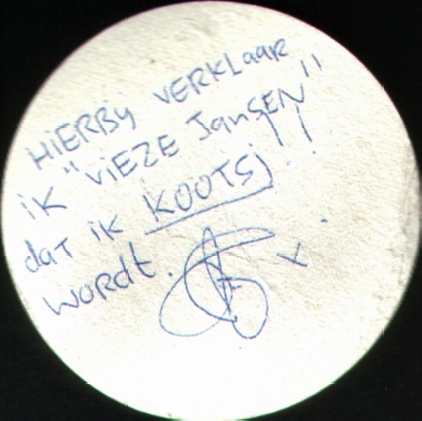 HiERBy VERKLaar
iK "ViEZE JanSEN"
dat iK KOOTSj!!
WORdt.